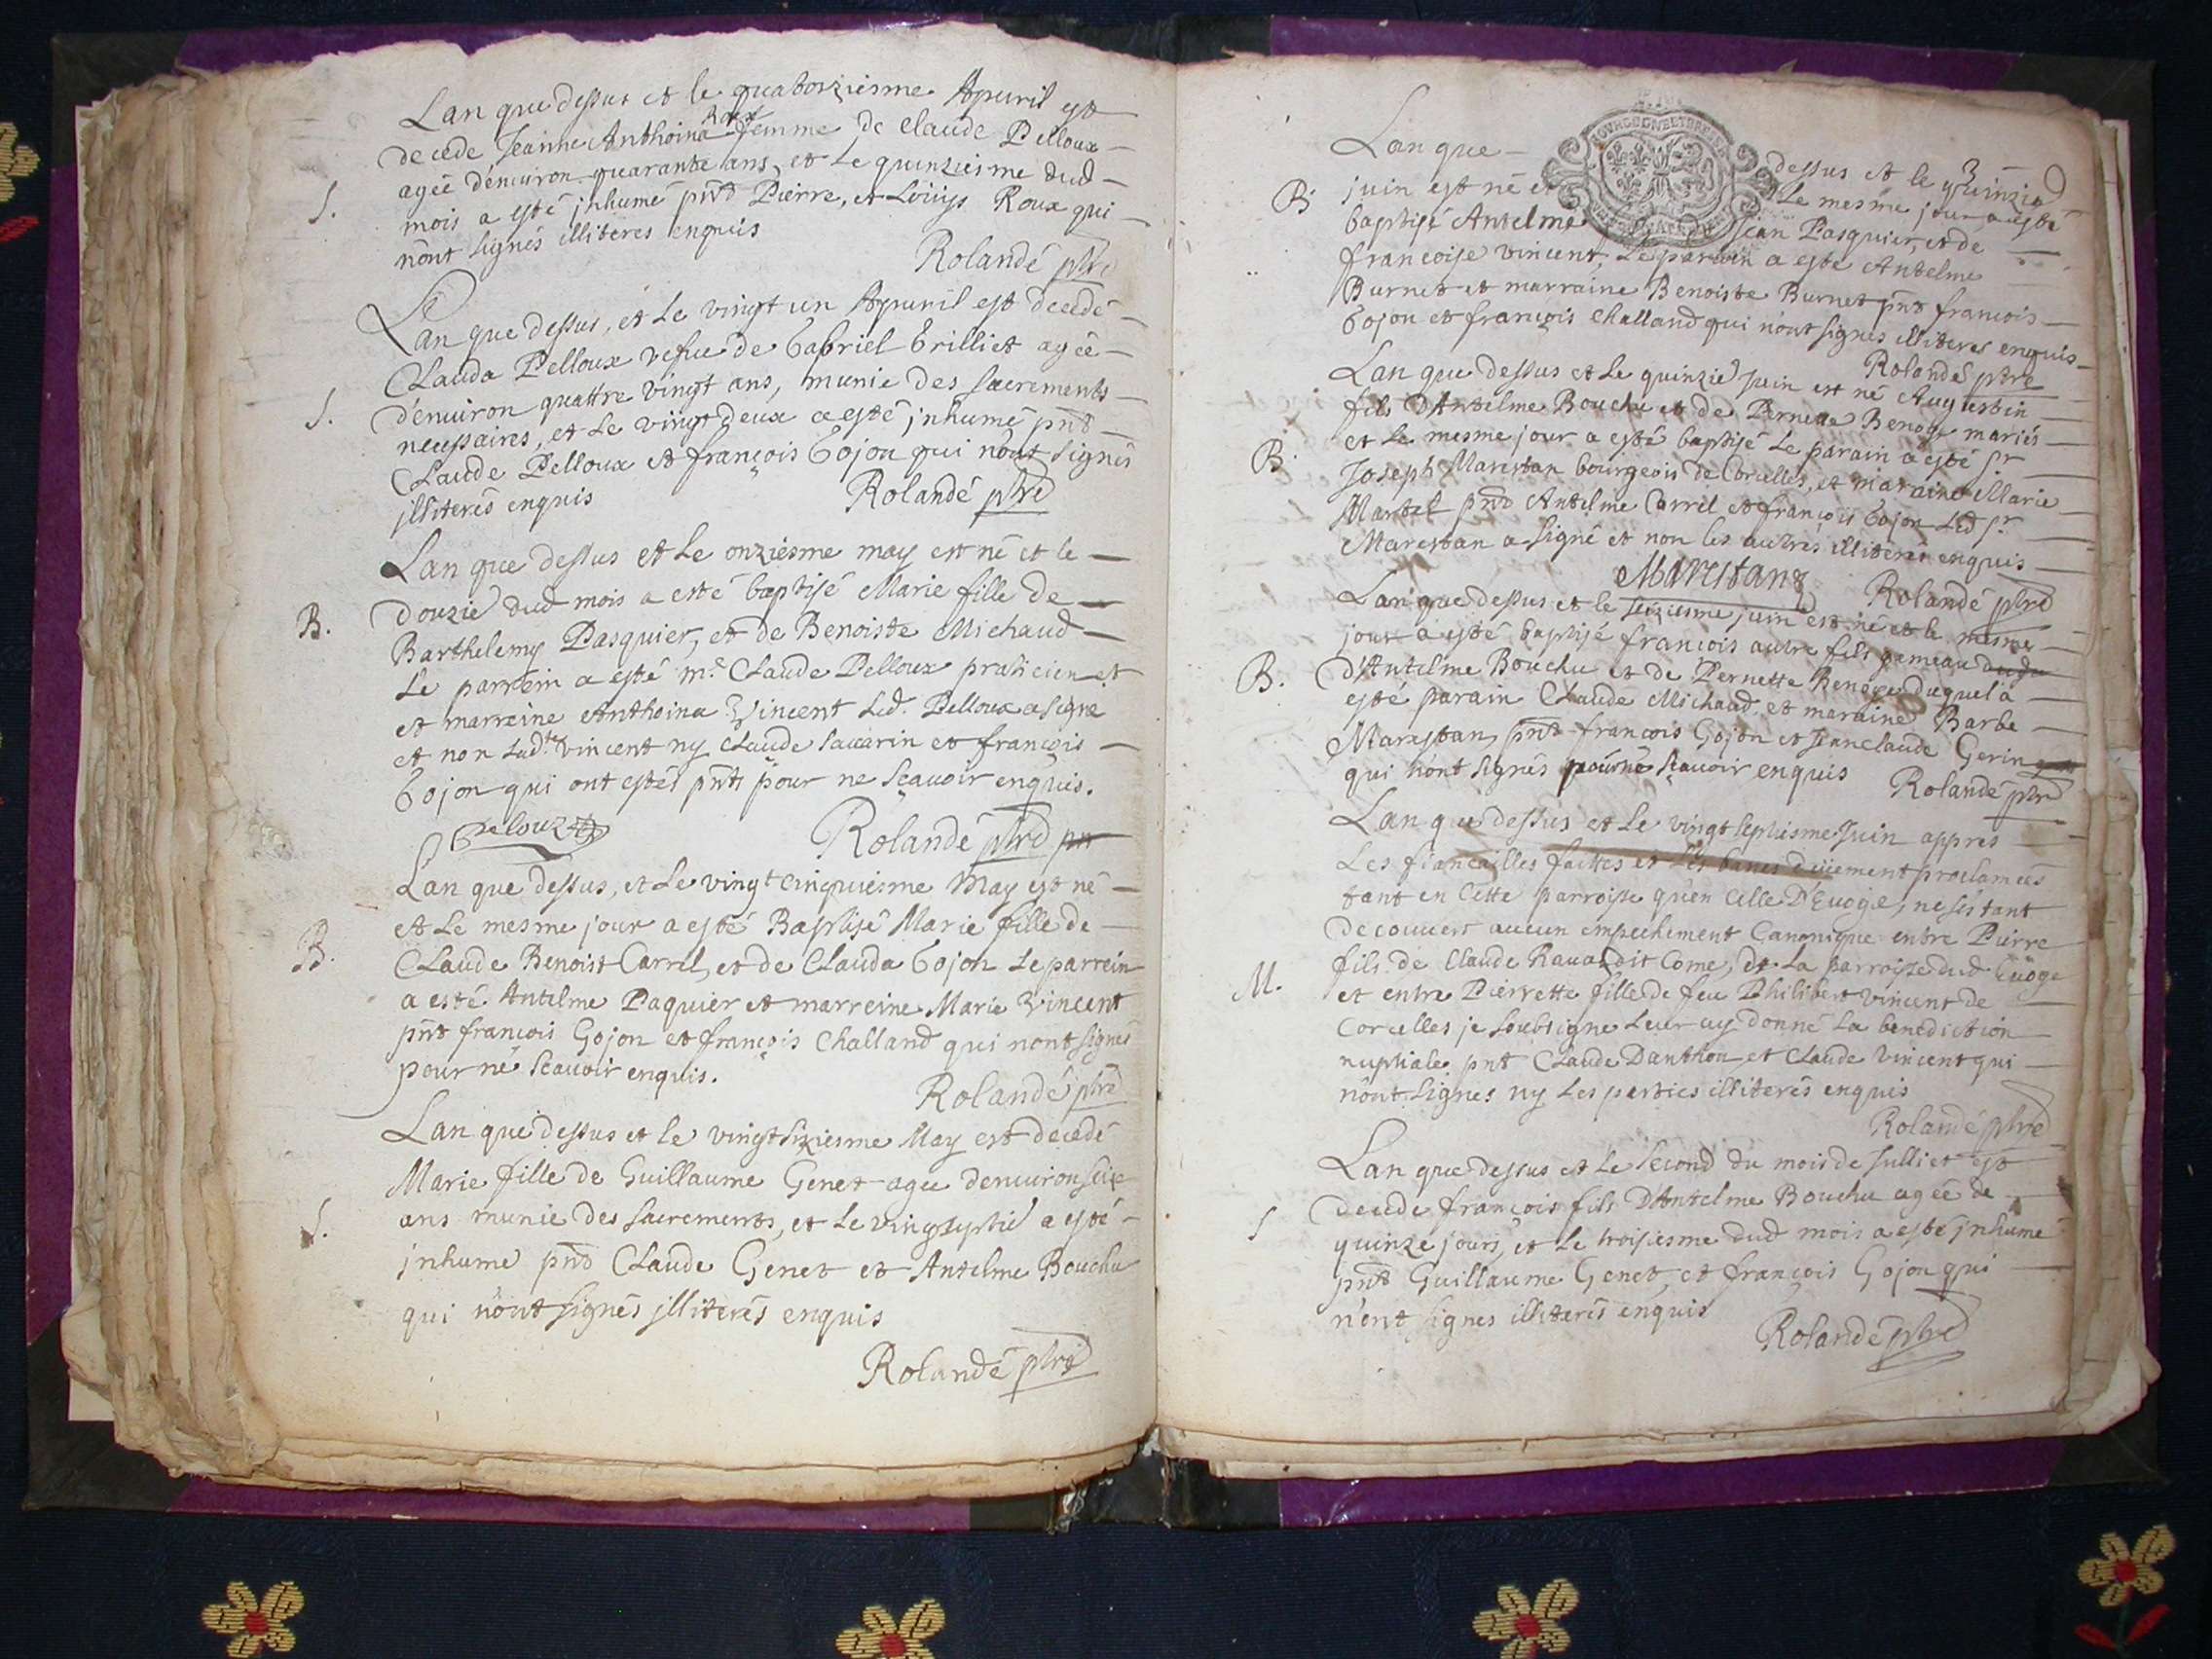 Lan que dessus et le quatorziesme Apuril est
Roux
decede Jeanne Anthoina femme de Claude Pelloux
agée d'enuiron quarante ans, et Le quinziesme dud
S.
mois a esté jnhumé pnt Pierre, et Loüys Roux qui
nont signés illiteres enquis
Rolandé ptre
Lan que dessus, et Le vingt un Apuril est decedé
Clauda Pelloux vefue de Gabriel Trilliet agée
d'enuiron quattre vingt ans, munie des sacrements
S.
necessaires, et Le vingt deux a esté jnhumé pnt
Claude Pelloux et françois Gojon qui nont signés
jlliterés enquis
Rolandé ptre
Lan que dessus et Le onziesme may est né et le
douzie dud mois a esté baptisé Marie fille de
B.
Barthelemy Pasquier, et de Benoiste Michaud
Le parrein a esté m.e Claude Pelloux praticien et
et marreine Anthoina Vincent Led. Pelloux a signe
et non Lad.te Vincent ny Claude Saccarin et françois
Gojon qui ont estés pnts pour ne sçauoir enquis.
Pelloux
Rolandé ptre
Lan que dessus, et Le vingt cinquiesme May est né
et Le mesme jour a esté Baptisé Marie fille de
B.
Claude Benoist Carrel, et de Clauda Gojon Le parrein
a esté Antelme Paquier et marreine Marie Vincent
pnt françois Gojon et françois Challand qui nont signés
pour ne sçauoir enquis.
Rolandé ptre
Lan que dessus et le vingt siziesme May est decedé
Marie fille de Guillaume Genet agee denuiron seize
ans munie des sacrements, et Le vingtseptie a esté
S.
jnhume pnt Claude Genet et Antelme Bouchu
qui nont signés jlliterés enquis
Rolandé ptre
Lan que dessus et le quinzie
juin est né et Le mesme jour a esté
B
baptisé Antelme Jean Pasquier, et de
francoise Vincent, Le parrein a esté Antelme
Burnet et marraine Benoiste Burnet pnt francois
Gojon et françois Challand qui nont signes illiteres enquis
Rolandé ptre
Lan que dessus et Le quinzie juin est né Augustin
fils D'Antelme Bouchu et de Pernette Benoge mariés
et Le mesme jour a esté baptisé Le parain a esté sr
B.
Joseph Marestan bourgeois de Corcelles, et maraine Marie
Martel pnt Antelme Carrel et françois Gojon Led sr
Marestan a signé et non les autres illiteres enquis
Marestang
Rolandé ptre
Lan que dessus et le seiziesme juin est né et le mesme
jour a esté baptisé francois autre fils gemeau dudu
B.
d'Antelme Bouchu et de Pernette Benoge duquel a
esté parain Claude Michaud et maraine Barbe
Marestan, pnt francois Gojon et Jean Claude Gerin
qui nont signés pour ne sçauoir enquis
Rolandé ptre
Lan que dessus et Le vingt septiesme Juin appres
Les fiancailles faittes et Les bancs düement proclamées
tant en Cette parroisse qu'en Celle D'Euoge, ne s'estant
decouuert aucun empechement Canonique entre Pierre
fils de Claude Rauas dit Come, de La parroisse dud Euoge
M.
et entre Pierrette fille de feu Philibert Vincent de
Corcelles je soubsigne Leur ay donné La benediction
nuptiale pnt Claude Danthon et Claude Vincent qui
nont signes ny Les parties illiterés enquis
Rolandé ptre
Lan que dessus et Le second du mois de Julliet est
decede françois fils D'Antelme Bouchu agée de
S
quinze jours, et Le troisiesme dud mois a esté jnhumé
pnt Guillaume Genet, et françois Gojon qui
n'ont signes illiterés enquis
Rolandé ptre